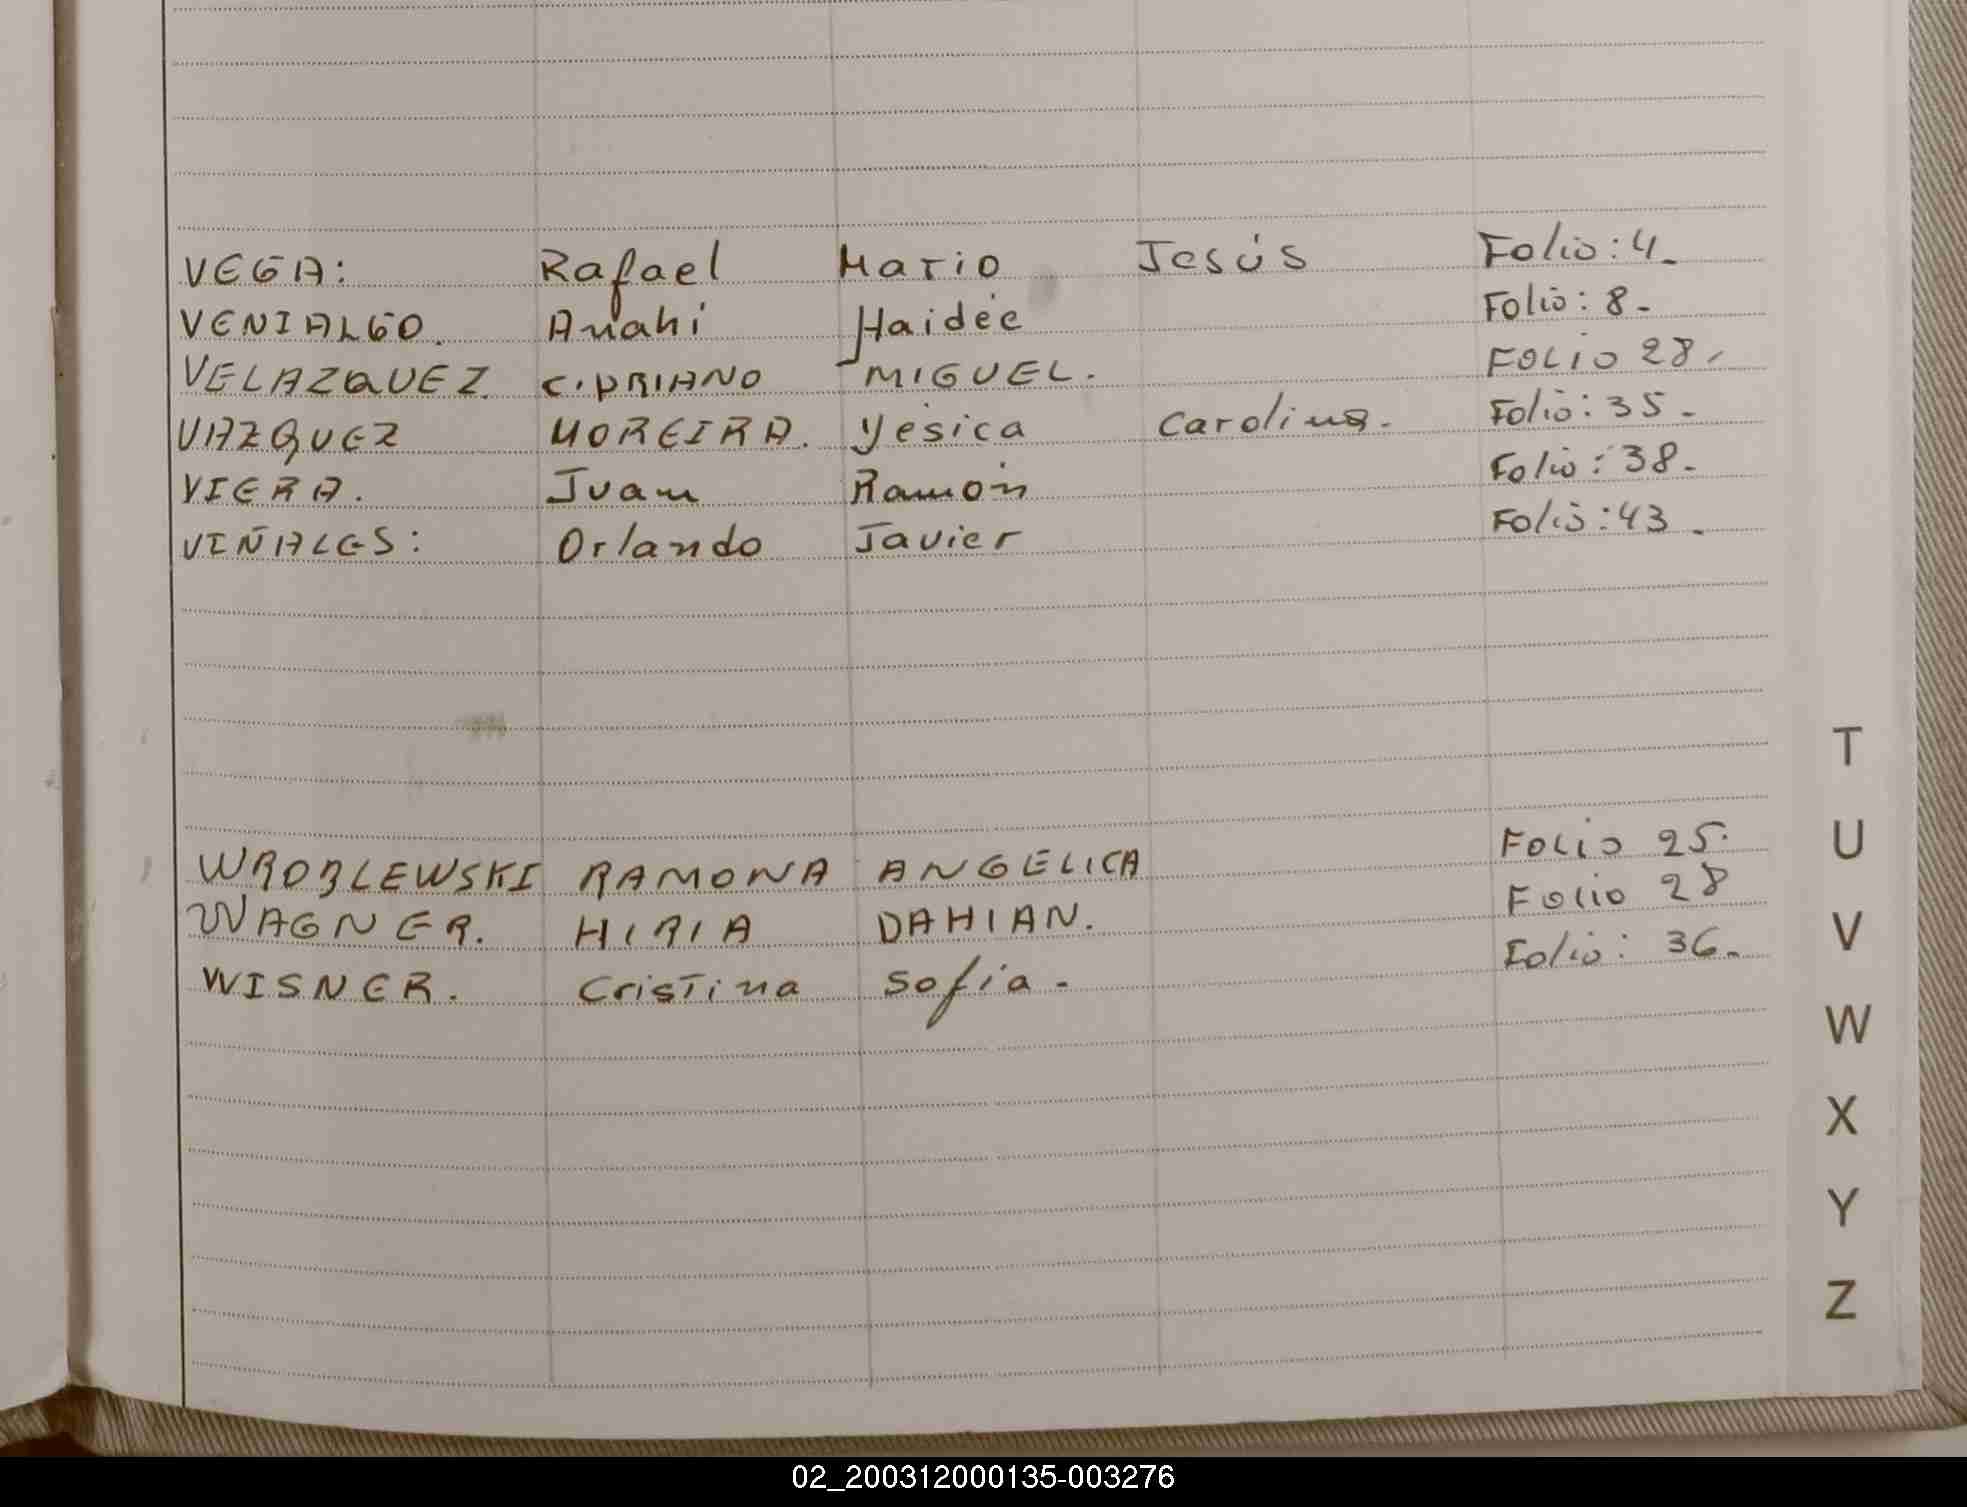 VEGA: Rafael Mario Jesús Folio: 4.
VENIALGO. Anahi Haideé Folio: 8.
VELAZQUEZ. CIPRIANO MIGUEL. FOLIO 28.
VAZQUEZ MOREIRA. Yésica Carolina. Folio: 35.
VIERA. Juan Ramón Folio: 38.
VIÑALES: Orlando Javier Folio: 43.
WROBLEWSKI RAMONA ANGELICA FOLIO 25.
WAGNER. HIRIA DAHIAN. FOLIO 28
WISNER. Cristina Sofia. Folio: 36.
T
U
V
W
X
Y
Z
02_200312000135-003276